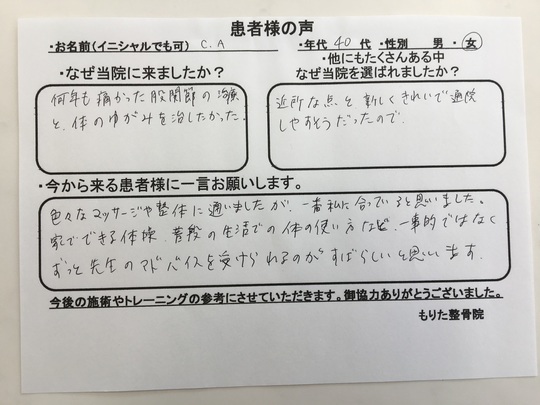 患者様の声
・お名前(イニシャルでも可) C.A ・年代 40 代 ・性別 男 ・ 女
・なぜ当院に来ましたか？
・他にもたくさんある中
なぜ当院を選ばれましたか？
何年も痛かった股関節の治療
と、体のゆがみを治したかった。
近所な点と新しくきれいで通院
しやすそうだったので。
・今から来る患者様に一言お願いします。
色々なマッサージや整体に通いましたが、一番私に合っていると思いました。
家でできる体操、普段の生活での体の使い方など、一事的ではなく
ずっと先生のアドバイスを受けられるのがすばらしいと思います。
今後の施術やトレーニングの参考にさせていただきます。御協力ありがとうございました。
もりた整骨院